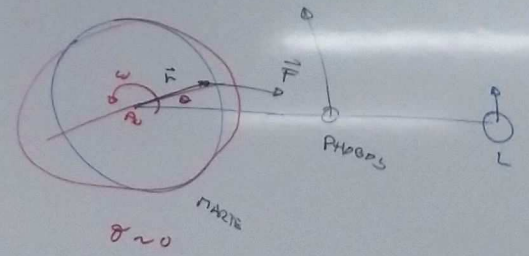 ω
r
F
PHOBOS
L
MARTE
γ ~ 0